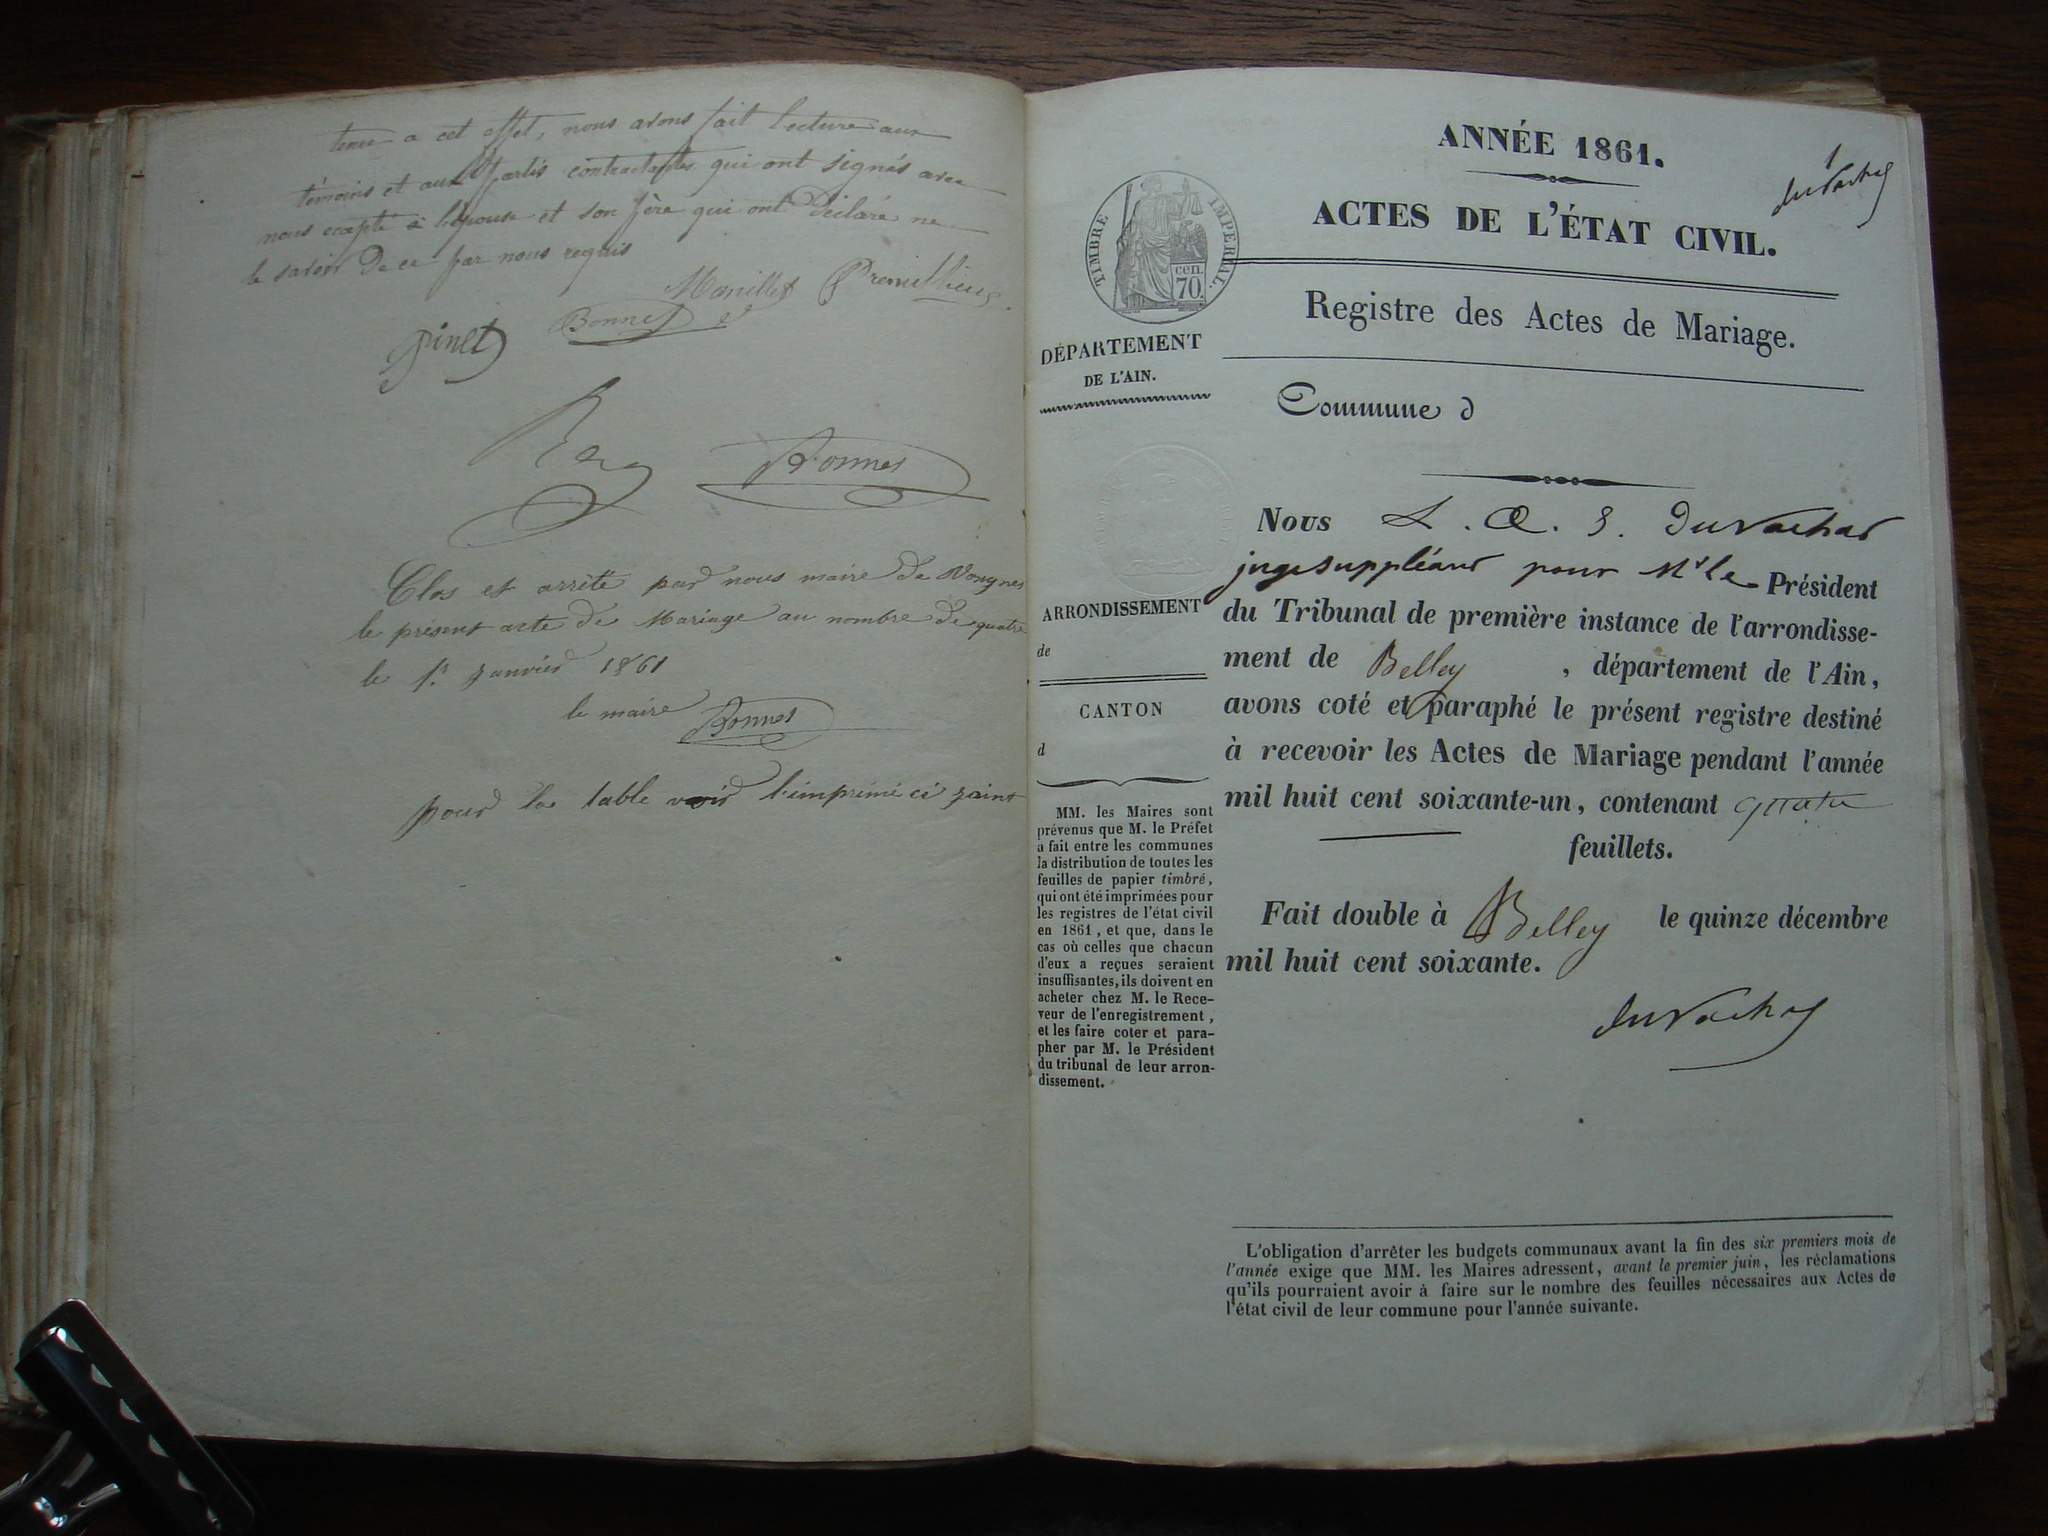 tenu a cet effet, nous avons fait lecture aux
témoins et aux partis contractantes qui ont signés avec
nous excepté l'épouse et son père qui ont déclaré ne
le savoir de ce par nous requis
Premillieux
Pinet Bonnet
Bonnet
Clos et arrêté par nous maire de Vongnes
le présent acte de Mariage au nombre de quatre
le 1er janvier 1861
le maire Bonnet
pour la table voir l'imprimé ci joint
ANNÉE 1861.
1
duvachat
ACTES DE L'ÉTAT CIVIL.
TIMBRE IMPÉRIAL.
70. cen.
Registre des Actes de Mariage.
DÉPARTEMENT
DE L'AIN.
Commune d
ARRONDISSEMENT
de
CANTON
d
MM. les Maires sont
prévenus que M. le Préfet
a fait entre les communes
la distribution de toutes les
feuilles de papier timbré,
qui ont été imprimées pour
les registres de l'état civil
en 1861, et que, dans le
cas où celles que chacun
d'eux a reçues seraient
insuffisantes, ils doivent en
acheter chez M. le Rece-
veur de l'enregistrement,
et les faire coter et para-
pher par M. le Président
du tribunal de leur arron-
dissement.
Nous Duvachat
juge suppléant pour Mr le Président
du Tribunal de première instance de l'arrondisse-
ment de Belley, département de l'Ain,
avons coté et paraphé le présent registre destiné
à recevoir les Actes de Mariage pendant l'année
mil huit cent soixante-un, contenant quatre
feuillets.
Fait double à Belley le quinze décembre
mil huit cent soixante.
duvachat
L'obligation d'arrêter les budgets communaux avant la fin des six premiers mois de
l'année exige que MM. les Maires adressent, avant le premier juin, les réclamations
qu'ils pourraient avoir à faire sur le nombre des feuilles nécessaires aux Actes de
l'état civil de leur commune pour l'année suivante.